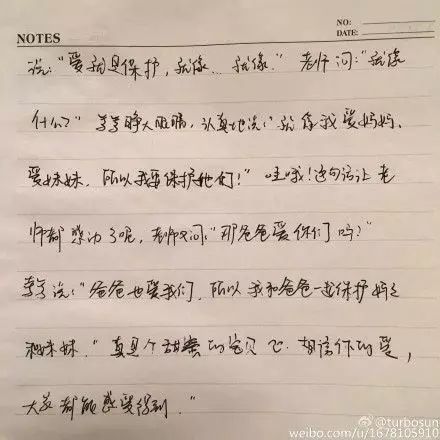 NO:
NOTES
DATE:
说:"爱就是保护,就像...就像." 老师问:"就像
什么?" 睁大眼睛,认真地说:"就像我爱妈妈,
爱妹妹,所以我要保护她们!" 哇哦!这句话让老
师都感动了呢,老师又问:"那爸爸爱你们吗?"
说:"爸爸也爱我们,所以我和爸爸一起保护妈妈
和妹妹." 真是个甜蜜的宝贝,相信你的爱,
大家都能感受得到."
@turbosun
weibo.com/u/1678105910